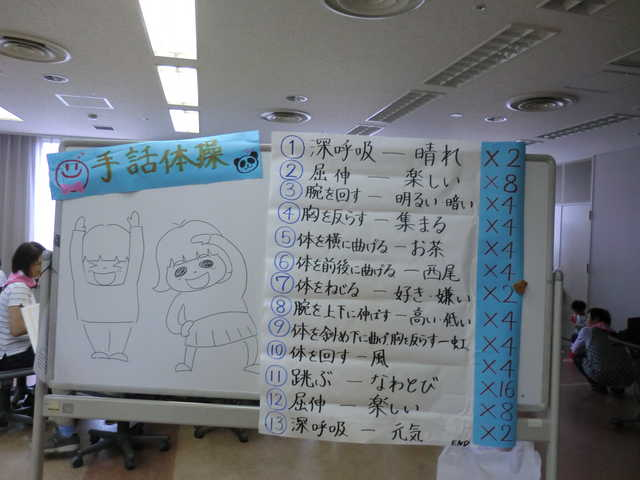 手話体操
① 深呼吸 ― 晴れ ×2
② 屈伸 ― 楽しい ×8
③ 腕を回す ― 明るい 暗い ×4
④ 胸を反らす ― 集まる ×4
⑤ 体を横に曲げる ― お茶 ×4
⑥ 体を前後に曲げる ― 西尾 ×4
⑦ 体をねじる ― 好き・嫌い ×2
⑧ 腕を上下に伸ばす ― 高い・低い ×4
⑨ 体を斜め下に曲げ胸を反らす ― 虹 ×4
⑩ 体を回す ― 風 ×4
⑪ 跳ぶ ― なわとび ×16
⑫ 屈伸 ― 楽しい ×8
⑬ 深呼吸 ― 元気 ×2
END